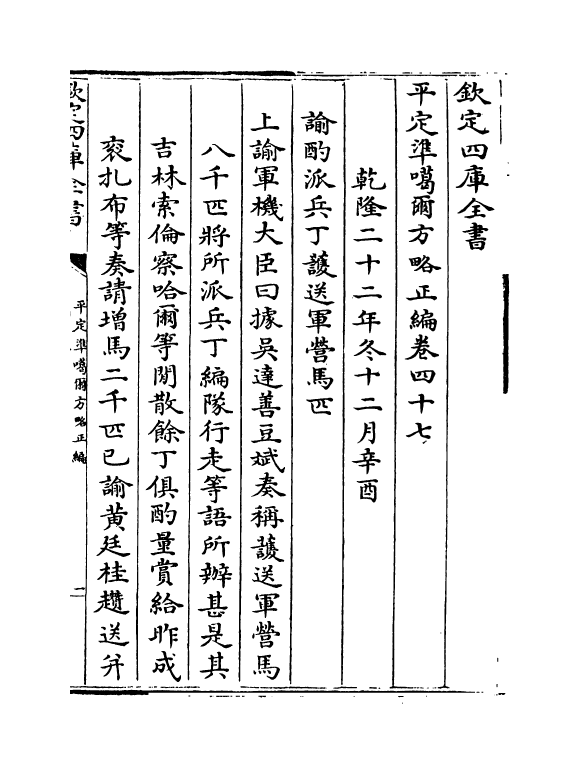 欽定四庫全書
平定準噶爾方略正編卷四十七
乾隆二十二年冬十二月辛酉
諭酌派兵丁護送軍營馬匹
上諭軍機大臣曰據吳達善豆斌奏稱護送軍營馬
八千匹將所派兵丁編隊行走等語所辦甚是其
吉林索倫察哈爾等閒散餘丁俱酌量賞給昨成
袞扎布等奏請增馬二千匹已諭黃廷桂趲送并
欽定四庫全書
平定準噶爾方略正編